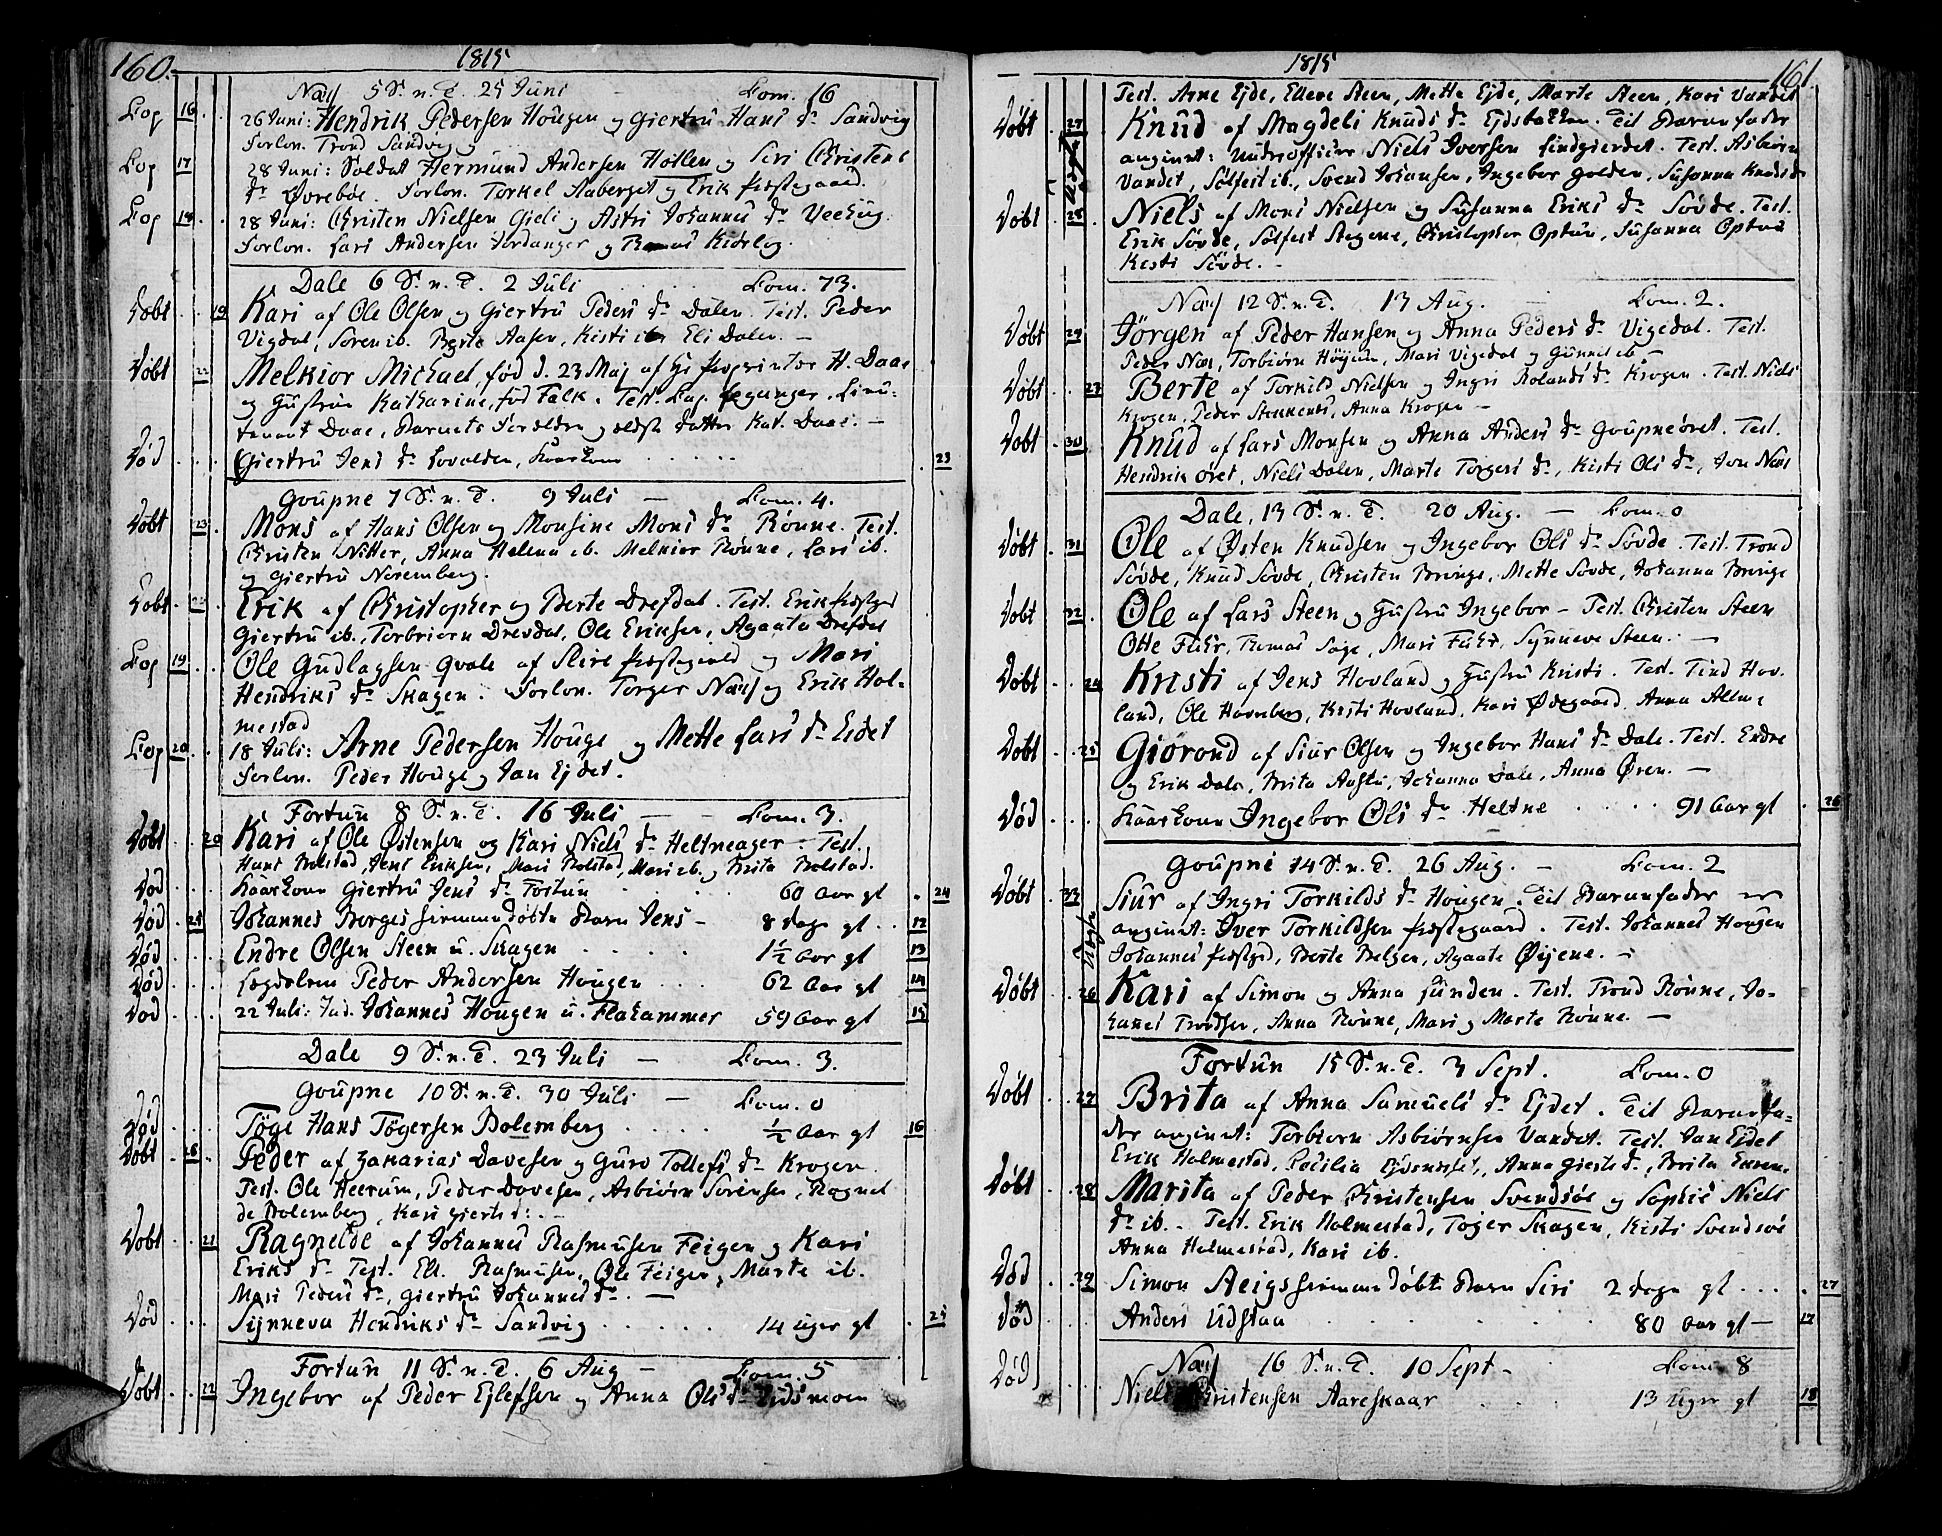 160.
1815
Næs 5 S. n. T. 25 Juni - Com. 16
Cop 16 26 Juni: Hendrik Pedersen Hougen og Giertru Hans Dr Sandvig
Forlov. Trond Sandvig og
Cop 17 28 Juni: Soldat Hermund Andersen Hollen og Siri Christens
Dr Øvrebøe. Forlov. Torkel Aaberget og Erik Præstegaard.
Cop 18 28 Juni: Christen Nielsen Gieli og Astri Johannes Dr Veehug.
Forlov. Lars Andersen Jordanger og
Dale 6 S. n. T. 2 Juli Com. 73.
Døbt 19 Kari af Ole Olsen og Giertru Peders Dr Dalen. Test. Peder
Vigdal, Søren ib. Berte Aasen, Kisti ib. Eli Dalen. -
Døbt 22 Melkior Michael, fød d. 23 Maj af Hr H. Daae
og Hustrue Katharine, fød Falk. Test. Cap. Leganger, Lieu-
tenant Daae, Barnets Forældre og ældste datter Kat. Daae. -
Død Giertru Jens Dr Lovalden, 23
Goupne 7 S. n. T. 9 Juli - Com. 4.
Døbt 23 Mons af Hans Olsen og Monsine Mons Dr Rønne. Test.
Christen Nitter, Anna Helena ib. Melkior Rønne, Lars ib.
og Giertru Noremberg.
Døbt Erik af Christopher og Berte Drefdal. Test. Erik Præstegd
Giertru ib., Torbiorn Drevdal, Ole Eriksen, Agaata Drefdal
Cop 19 Ole Gudlagsen Qvale af Slire Præstegield og Mari
Hendriks Dr Skagen. Forlov. Torger Næss og Erik Hol-
mestad
Cop 20 18 Juli: Arne Pedersen Houge og Mette Lars Dr Eidet
Forlov. Peder Houge og Jan Ejdet.
Fortun 8 S. n. T. 16 Juli - Com. 3.
Døbt 20 Kari af Ole Østensen og Kari Niels Dr Heltneager. Test.
Hans Bolstad, Jens Eriksen, Mari Bolstad, Mari ib. og Brita Bolstad.
Død Giertru Jens Dr Fortun 60 Aar gl 24
Død 25 Johannes Borges hiemmedøbte Barn Jens - 8 dage gl 12
Død Endre Olsen Steen u. Skagen 1½ Aar gl 13
Død Lægdslem Peder Andersen Hougen 62 Aar gl 14
Død 22 Juli: Ind. Johannes Hougen u. Flahammer 59 Aar gl 15
Dale 9 S. n. T. 23 Juli - Com. 3.
Goupne 10 S. n. T. 30 Juli - Com. 0
Død Töge Hans Tögersen Bolemberg ½ Aar gl 16
Døbt 26 Peder af Zakarias Davesen og Guro Tollefs Dr Krogen.
Test. Ole Heerum, Peder Davesen, Asbiörn Sörensen, Ragnel
de Bolemberg, Kari Gierts d: -
Døbt 21 Ragnelde af Johannes Rasmusen Feigen og Kari
Eriks Dr Test. Ell. Rasmusen, Ole Feigen, Marte ib.
Mari Peders Dr, Giertru Johannes Dr. -
Død Synneva Hendriks Dr Sandvig 14 uger gl 25
Fortun 11 S. n. T. 6 Aug - Com. 5
Døbt 22 Ingebor af Peder Ejlefsen og Anna Ols Dr Eidsmoen
161
1815
Test. Arne Ejde, Ellene Steen, Mette Ejde, Marte Steen, Kari Vandet
Døbt 27 Knud af Magdeli Knuds Dr Ejdsbakken. Til Barnefader
angivet: Underofficier Niels Iversen Lindgierdet. Test. Asbiörn
Vandet, Sølfest ib., Svend Johansen, Ingebor Golden, Susanna Knuds d
Døbt 28 Niels af Mons Nielsen og Susanna Eriks Dr Søvde. Test.
Erik Søvde, Sølfest Stegene, Christopher Optun, Susanna Optun
Kesti Søvde. -
Næs 12 S. n. T. 13 Aug. - Com. 2.
Døbt 29 Jörgen af Peder Hansen og Anna Peders Dr Vigdal. Test.
Peder Næs, Torbiörn Høyum, Mari Vigdal og Gunnil ib. -
Døbt 23 Berte af Torkild Nielsen og Ingri Rolands Dr Krogen. Test. Niels
Krogen, Peder Stokkenes, Anna Krogen -
Døbt 30 Knud af Lars Monsen og Anna Anders Dr Goupneøret. Test.
Hendrik Øret, Niels Dalen, Marte Torgers Dr, Kisti Ols Dr, Jon Næs
Dale, 13 S. n. T. 20 Aug. - Com. 0
Døbt 31 Ole af Østen Knudsen og Ingebor Ols Dr Søvde. Test. Trond
Søvde, Knud Søvde, Christen Bringe, Mette Søvde, Johanna Bringe
Døbt 32 Ole af Lars Steen og Hustru Ingebor - Test. Christen Steen
Otte Fuhr, Tomas Soge, Mari Fuhr, Synneve Steen. -
Døbt 24 Kristi af Jens Hovland og Hustru Kristi. Test. Tind Hov-
land, Ole Havnberg, Kristi Hovland, Kari Ødegaard, Anna Alme
Døbt 25 Giörond af Siur Olsen og Ingebor Hans Dr Dale. Test. Endre
og Erik Dale, Brita Aasen, Johanna Dale, Anna Øren. -
Død Ingebor Ols Dr Heltne 91 Aar gl 26
Goupne 14 S. n. T. 26 Aug. - Com. 2
Døbt 33 Siur af Ingri Torkilds Dr Hougen. Til Barnefader er
angivet: Iver Torkildsen Præstegaard. Test. Johannes Hougen
Johannes Præstgd, Berte Bolgen, Agaate Øyene. -
Døbt 26 Kari af Simon og Anna Lunden. Test. Trond Rønne, Jo-
hanes Trondsen, Anna Rønne, Mari og Marte Rønne. -
Fortun 15 S. n. T. 3 Sept. Com. 0
Døbt 27 Brita af Anna Samuels Dr Ejdet. Til Barnefa-
der angivet: Torbiorn Asbiørnsen Vandet. Test. Jan Ejdet
Erik Holmestad, Cecilia, Anna Gierts d., Brita
Døbt 28 Marita af Peder Christensen Svendsøe og Sophie Niels
Dr ib. - Test. Erik Holmestad, Toger Skagen, Kisti Svendsøe
Anna Holmestad, Kari ib.
Død 29 Simon Aeigs hiemmedøbte Barn Siri 2 dage gl 27
Død Anders Udstaa 80 Aar gl - 17
Næs 16 S. n. T. 10 Sept - Com. 8
Død Niels Christensen Aareskaar 13 uger gl 18